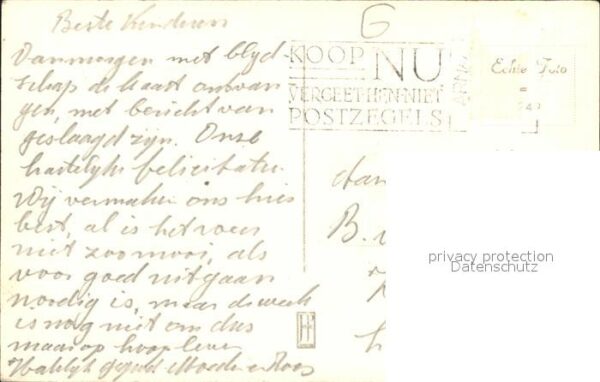 Beste Kinderen
Vanmorgen met blyd
schap de kaart ontvan
gen, met bericht van
geslaagd zijn. Onze
hartelijke felicitatie.
Wij vermaken ons hier
best, al is het weer
niet zoo mooi, als
voor goed uitgaan
noodig is, maar de week
is nog niet om dus
maar op hoop leven
Hartelijk gegroet Moeder en
G
KOOP NU
VERGEET HEN NIET
POSTZEGELS
Echte Foto
Aan
B.
privacy protection
Datenschutz